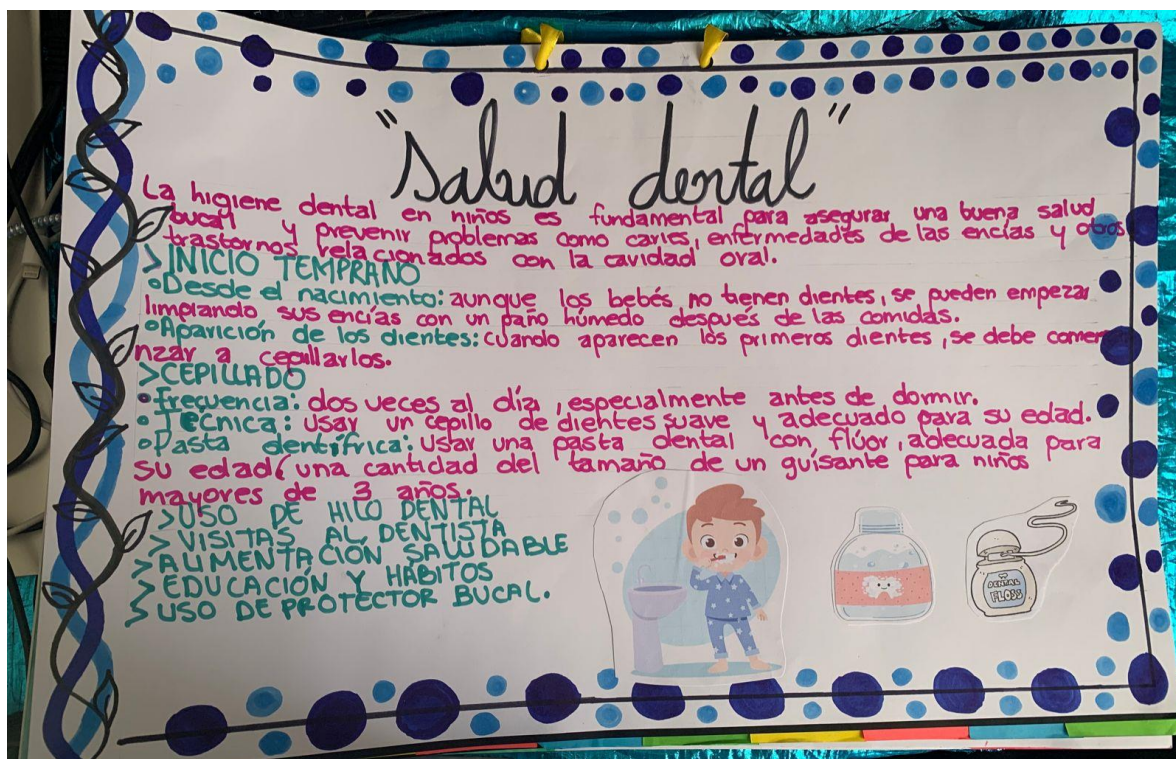 "Salud dental"
La higiene dental en niños es fundamental para asegurar una buena salud
bucal y prevenir problemas como caries, enfermedades de las encías y otros
trastornos relacionados con la cavidad oral.
>INICIO TEMPRANO
•Desde el nacimiento: aunque los bebés no tienen dientes, se pueden empezar
limpiando sus encías con un paño húmedo después de las comidas.
•Aparición de los dientes: cuando aparecen los primeros dientes, se debe comen
nzar a cepillarlos.
>CEPILLADO
•frecuencia: dos veces al día, especialmente antes de dormir.
•Técnica: usar un cepillo de dientes suave y adecuado para su edad.
•Pasta dentífrica: Usar una pasta dental con flúor, adecuada para
su edad (una cantidad del tamaño de un guisante para niños
mayores de 3 años.
>USO DE HILO DENTAL
>VISITAS AL DENTISTA
>ALIMENTACIÓN SALUDABLE
>EDUCACIÓN Y HÁBITOS
>USO DE PROTECTOR BUCAL.
DENTAL
FLOSS